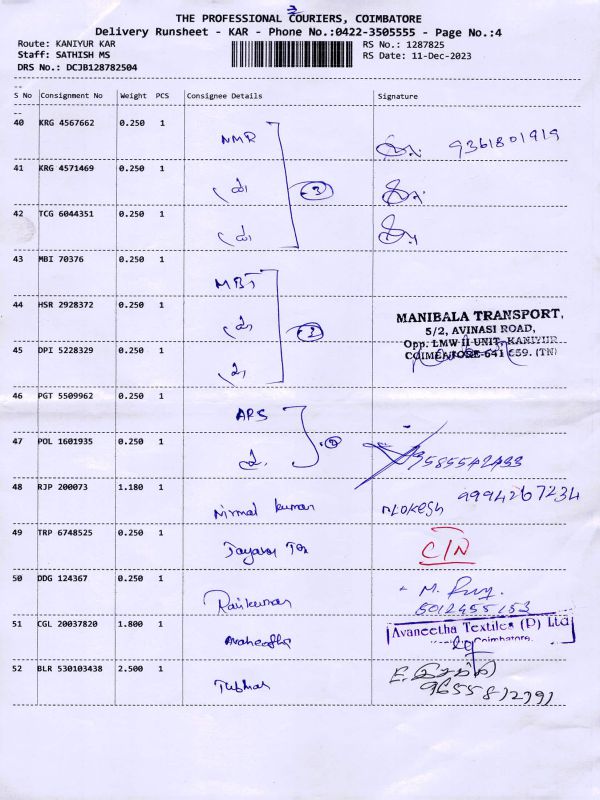 THE PROFESSIONAL COURIERS, COIMBATORE
Delivery Runsheet - KAR - Phone No.:0422-3505555 - Page No.:4
Route: KANIYUR KAR
RS No.: 1287825
Staff: SATHISH MS
RS Date: 11-Dec-2023
DRS No.: DCJB128782504
S No Consignment No Weight PCS Consignee Details Signature
40 KRG 4567662 0.250 1 NMR 9361801919
41 KRG 4571469 0.250 1 3
42 TCG 6044351 0.250 1
43 MBI 70376 0.250 1 MBT
44 HSR 2928372 0.250 1 MANIBALA TRANSPORT,
5/2, AVINASI ROAD,
Opp. LMW II UNIT, KANIYUR
45 DPI 5228329 0.250 1 COIMBATORE-641 659. (TN)
46 PGT 5509962 0.250 1 ARS
47 POL 1601935 0.250 1
48 RJP 200073 1.180 1 Nirmal kumar Lokesh 9994267234
49 TRP 6748525 0.250 1 C/N
50 DDG 124367 0.250 1 Ramkumar M.
51 CGL 20037820 1.800 1 Avaneetha Avaneetha Textiles (P) Ltd
Coimbatore.
52 BLR 530103438 2.500 1 E.